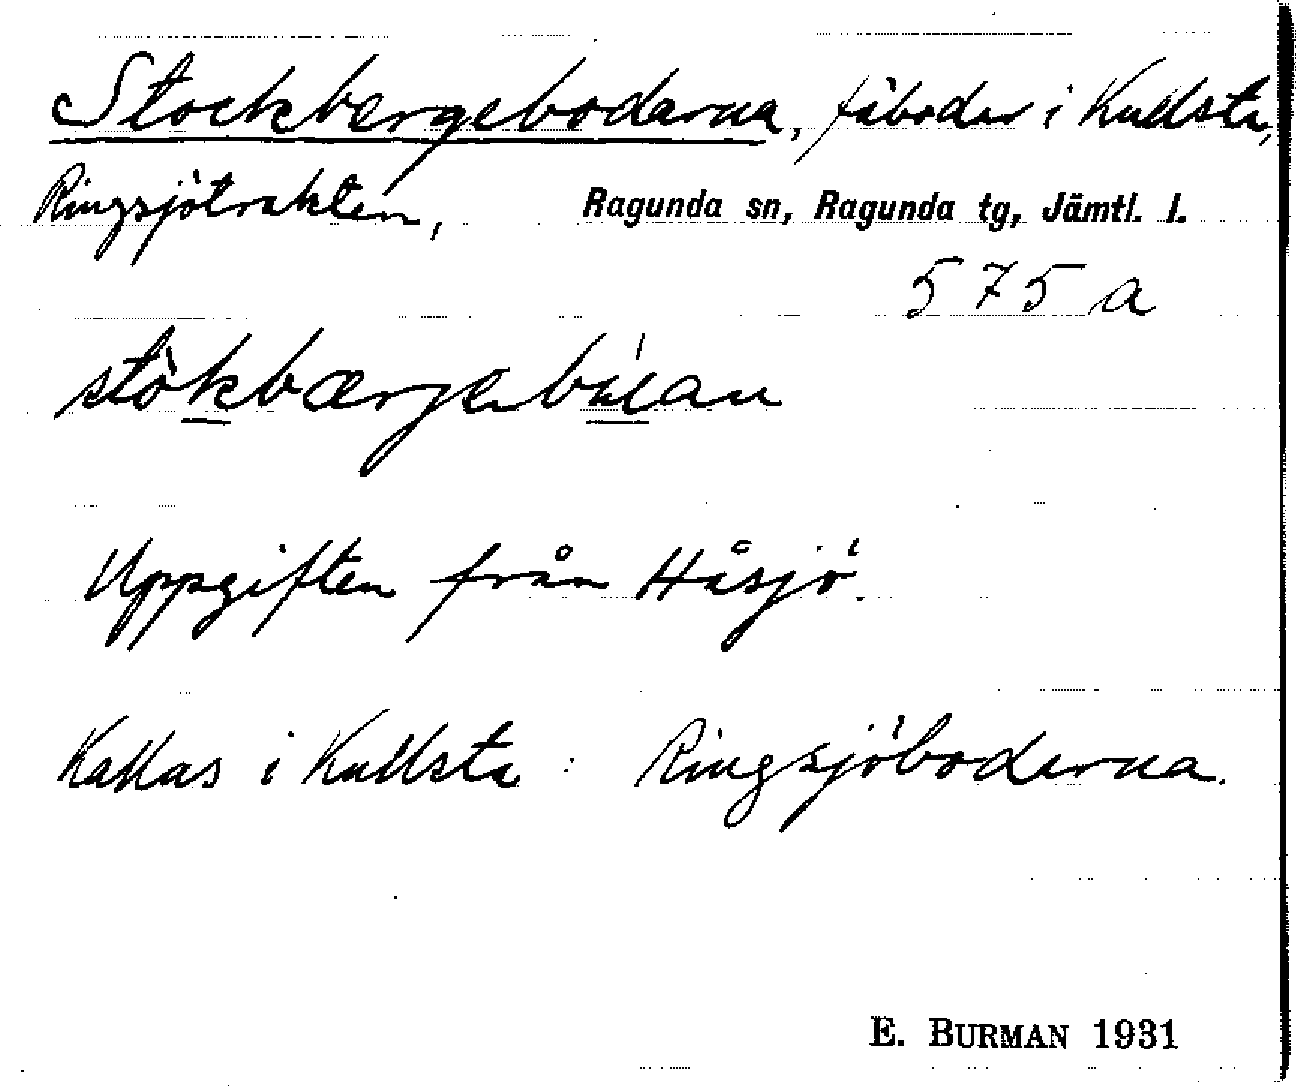 Stockbergebodarna, fäboder i Kullsta,
Ringsjötrakten, Ragunda sn, Ragunda tg, Jämtl. l.
575 a
Uppgiften från Håsjö.
Kallas i Kullsta: Ringsjöboderna.
E. BURMAN 1931